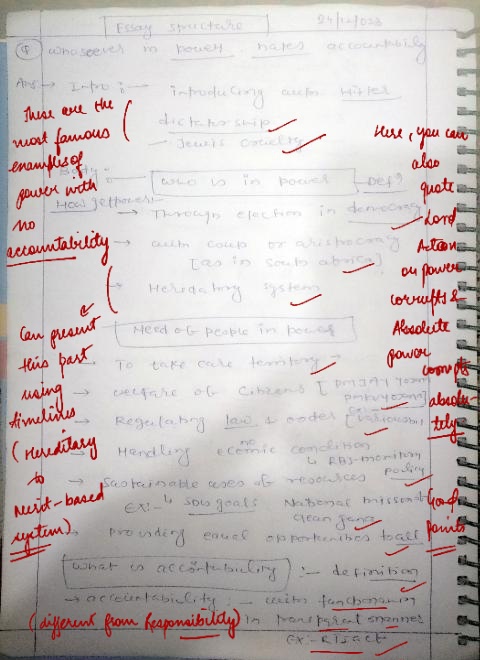 Essay structure
24/12/023
Q whosoever in power, hates accountability
Ans → Intro :- introducing with Hitler
dictatorship
- Jewis cruelty
These are the
most famous
examples of
power with
no
accountability
Here, you can
also
quote
Lord
Acton
on power
corrupts &
Absolute
power
corrupts
absolu-
tely
Body :-
who is in power Def?
How get power:-
→ Through election in democracy
→ with coup or aristocracy
[as in south africa]
→ Heridatary system
Can present
this part
using
timelines
(Hereditary
to
Merit-based
system)
Need of people in power
→ To take care territory
→ welfare of citizens [PMJAY
→ Regulating law & order [various
→ Handling ecomic condition
no
↳ RBI-monitory
policy
→ Sustainable uses of resources
Ex:- ↳ SDG goals National mission
clean ganga
→ Providing equal opportunities to all
Good
points
what is accountability :- definition
→ accountability :- with functionary
(different from Responsibility) in transparent manner
Ex:- RTI act